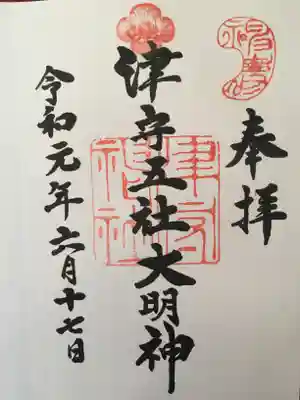 奉拝
津守五社大明神
津守神社
令和元年六月十七日